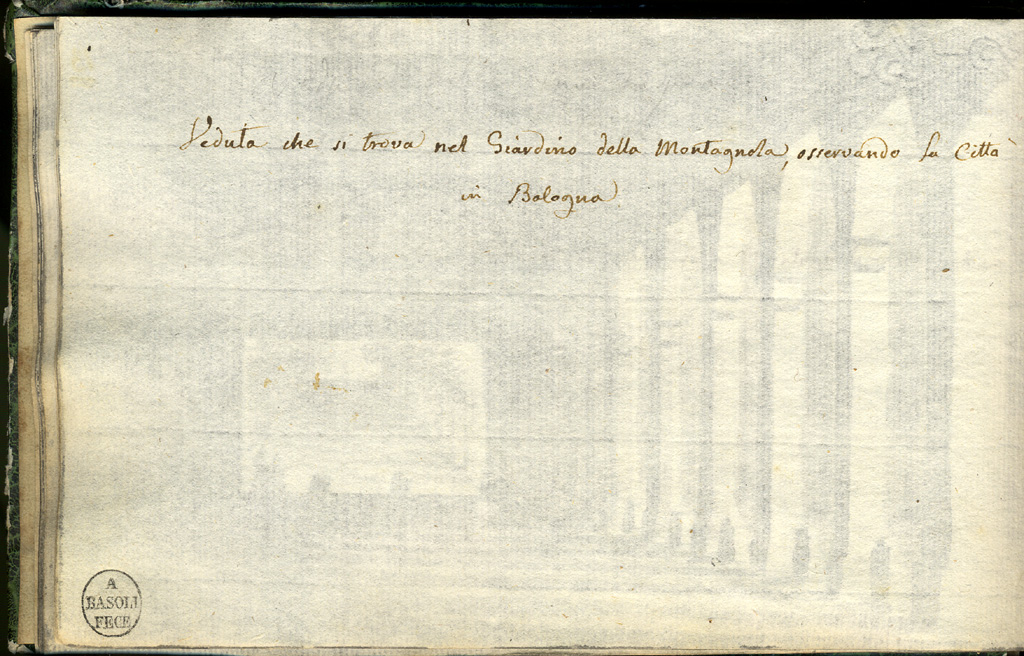 Veduta che si trova nel Giardino della Montagnola, osservando la Città
in Bologna
A
BASOLI
FECE